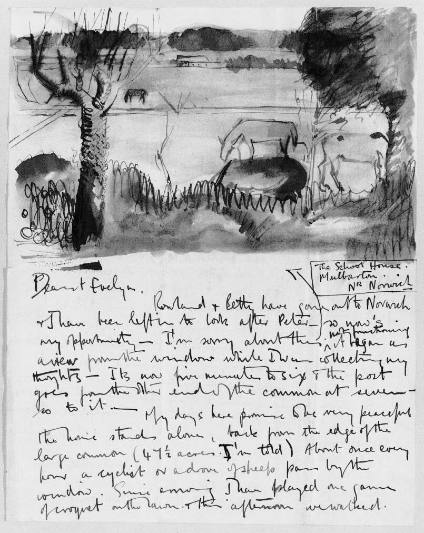 The School House.
Mulbarton.
Nr Norwich
Dearest Evelyn.
Rowland & Betty have gone out to Norwich
& I have been left in to look after Peter so now's
my opportunity — I'm sorry about this it began as
a view from the window while I was collecting my
thoughts — Its now five minutes to six & the post
goes from the other end of the common at seven —
so to it —
My days here promise to be very peaceful
the house stands alone, back from the edge of the
large common (47½ acres I'm told) About once every
hour a cyclist or a drove of sheep pass by the
window. Since arriving I have played one game
of croquet on the lawn & this afternoon we walked.